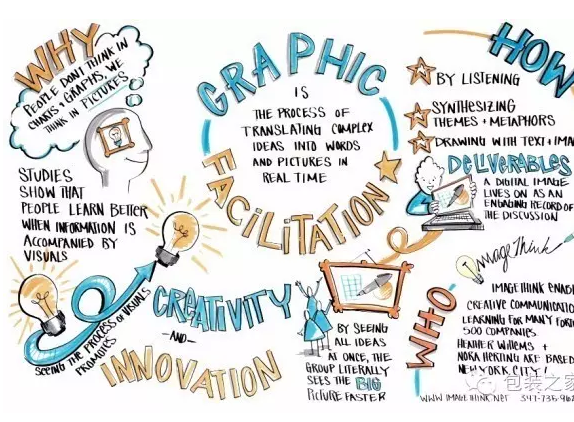 WHY
PEOPLE DON'T THINK IN
CHARTS + GRAPHS, WE
THINK IN PICTURES
STUDIES
SHOW THAT
PEOPLE LEARN BETTER
WHEN INFORMATION IS
ACCOMPANIED BY
VISUALS
SEEING THE PROCESS OF VISUALS
PROMOTES
CREATIVITY
-AND-
INNOVATION
GRAPHIC
FACILITATION
IS
THE PROCESS OF
TRANSLATING COMPLEX
IDEAS INTO WORDS
AND PICTURES IN
REAL TIME
BY SEEING
ALL IDEAS
AT ONCE, THE
GROUP LITERALLY
SEES THE BIG
PICTURE FASTER
HOW
BY LISTENING
SYNTHESIZING
THEMES + METAPHORS
DRAWING WITH TEXT + IMA
DELIVERABLES
A DIGITAL IMAGE
LIVES ON AS AN
ENGAGING RECORD OF
THE DISCUSSION
ImageThink
WHO
IMAGETHINK ENAB
CREATIVE COMMUNICATIO
LEARNING FOR MANY FORT
500 COMPANIES.
HEATHER WILLEMS +
NORA HERTING ARE BASED
NEW YORK CITY!
包装之家
WWW.IMAGETHINK.NET